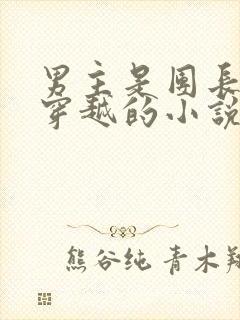 男主是團長
穿越的小說
熊谷纯 青木翔